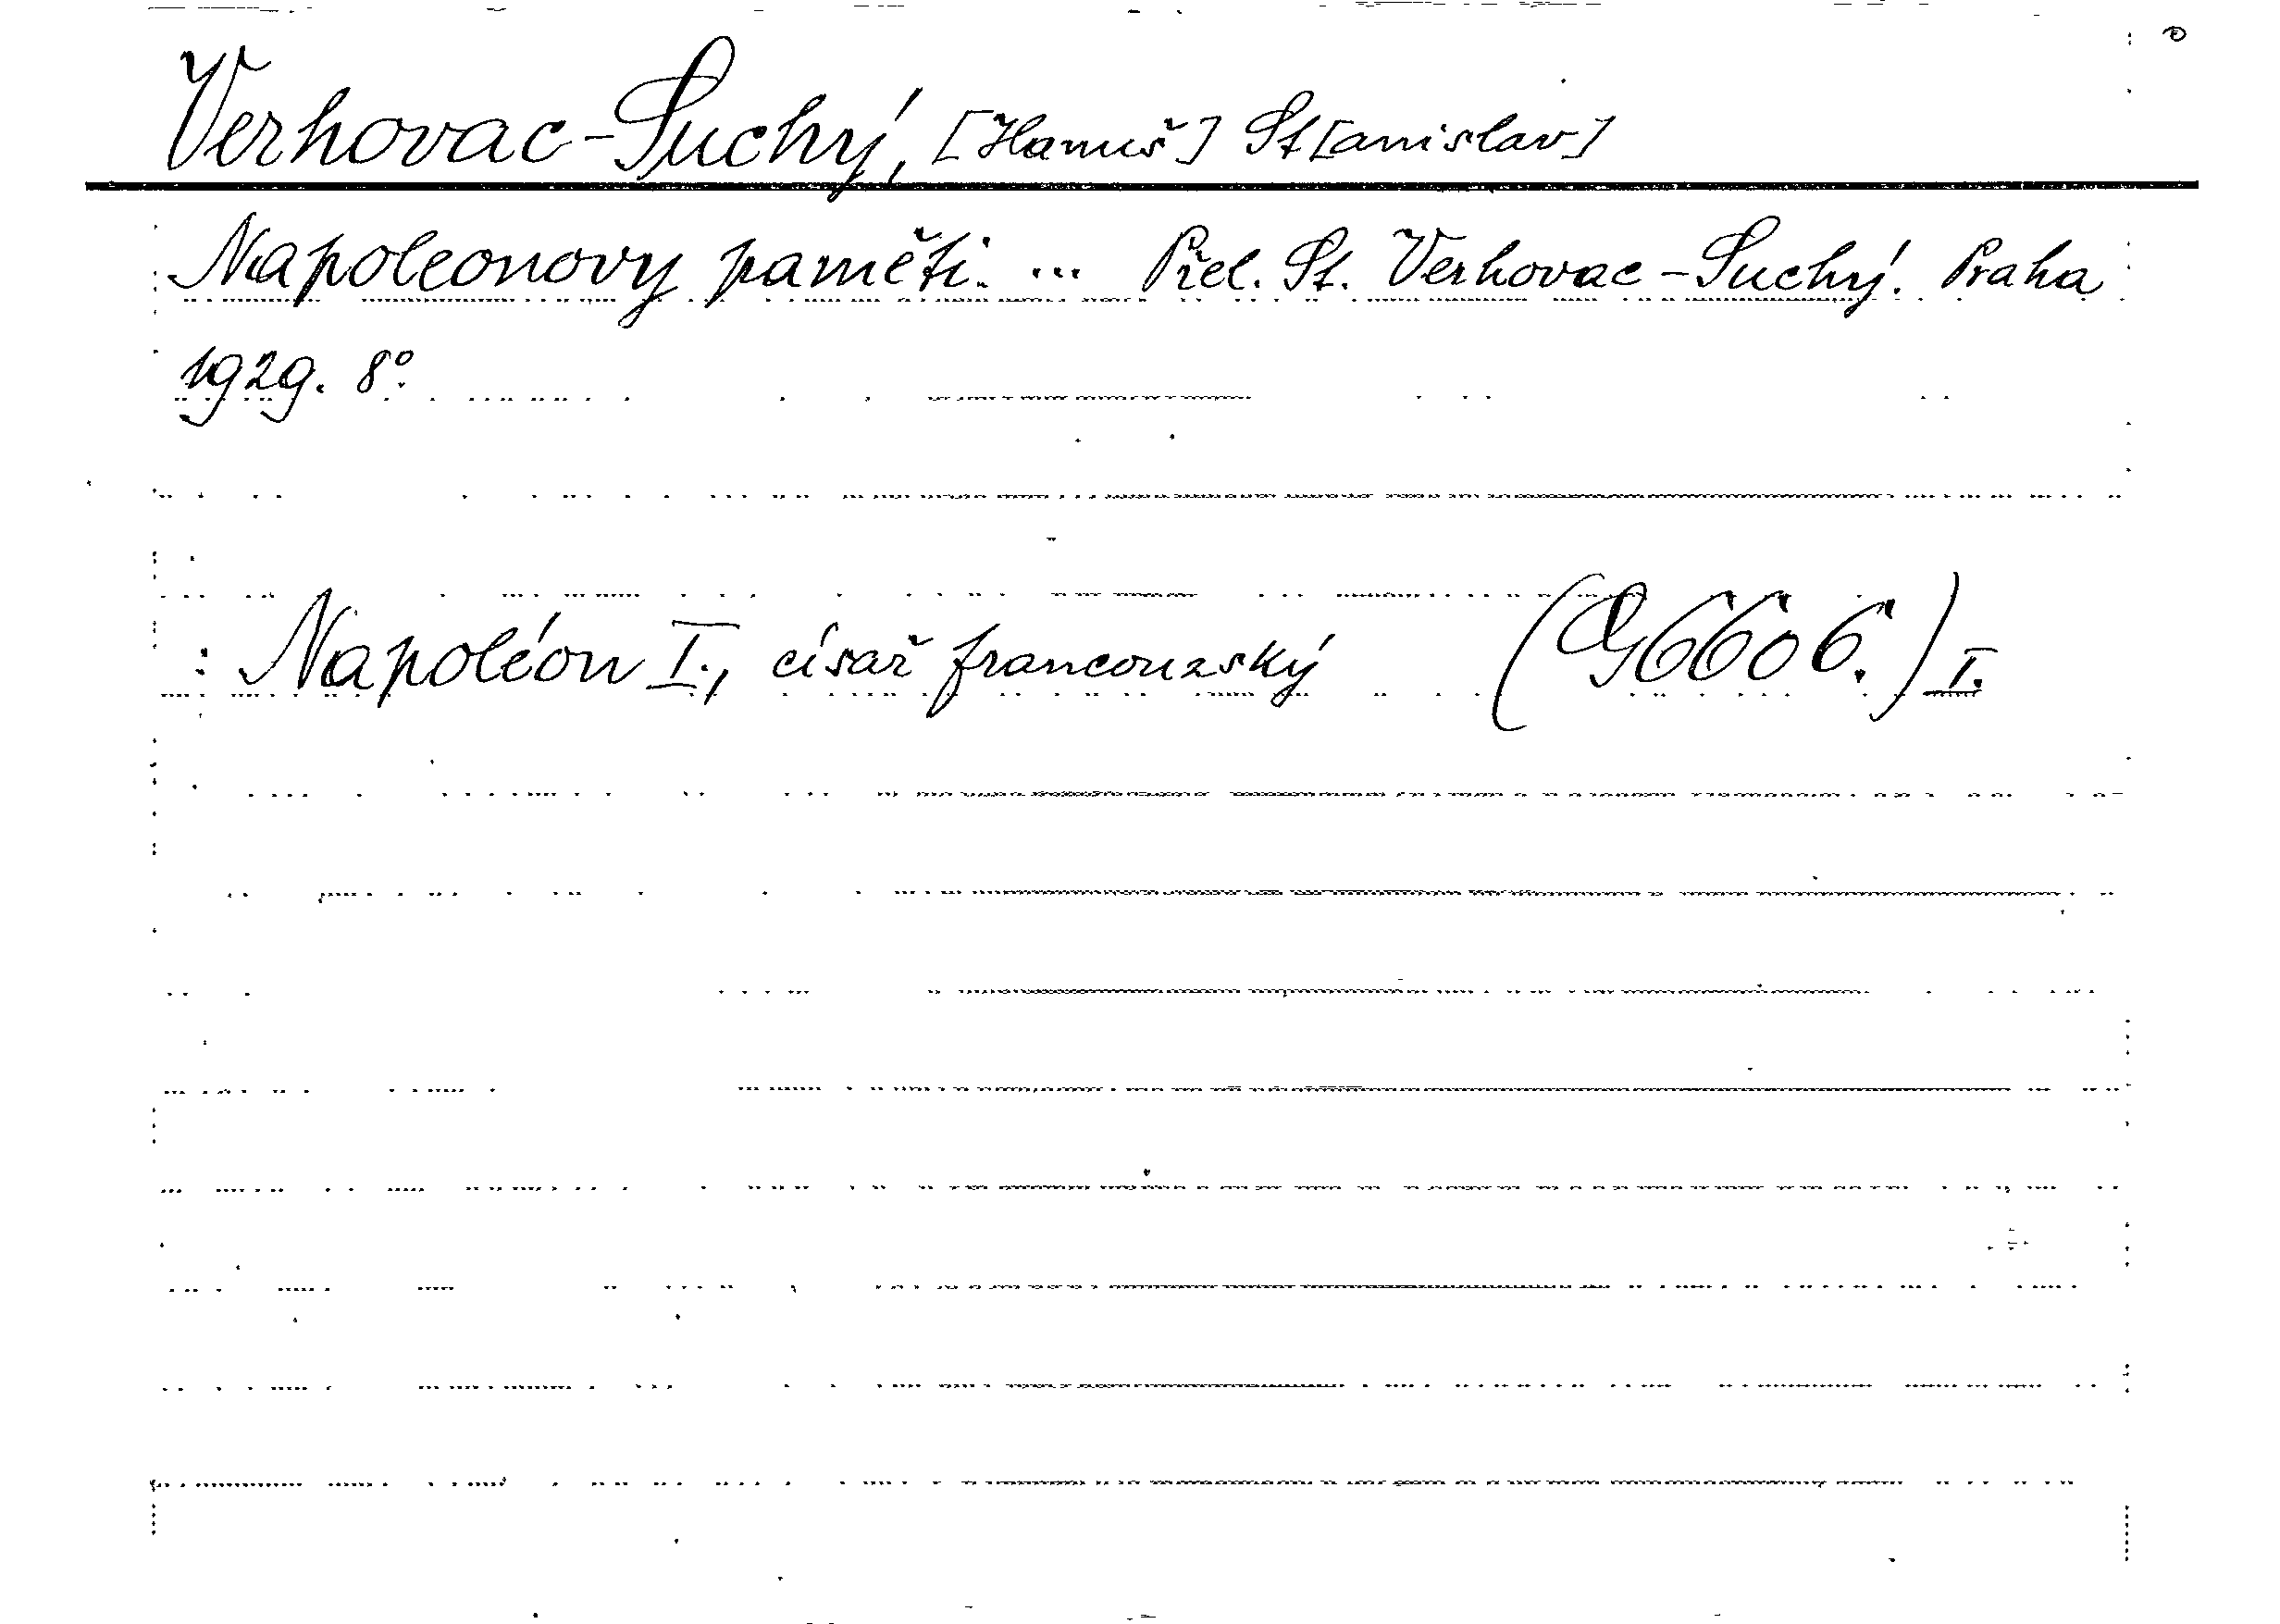 Verhovac-Suchý, [Hanuš] St[anislav]
Napoleonovy paměti. ... Přel. St. Verhovac-Suchý. Praha
1929. 8°.
: Napoléon I., císař francouzský (G 6606.) I.